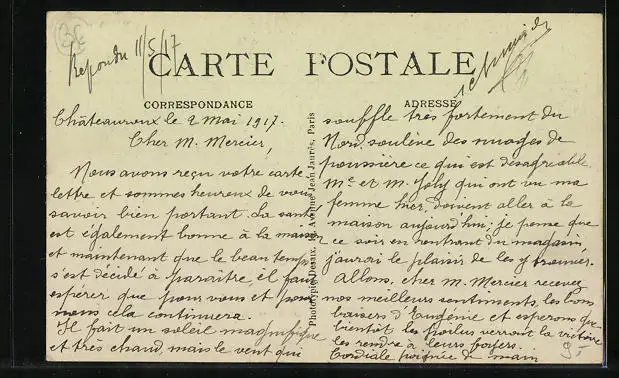 36
Repondu 11/5/17
CARTE POSTALE
CORRESPONDANCE
ADRESSE
Châteauroux le 2 mai 1917.
Cher M. Mercier,
Nous avons reçu votre carte-
lettre et sommes heureux de vous
savoir bien portant. La santé
est également bonne à la maison
et maintenant que le beau temps
s'est décidé à paraître, il faut
espérer que pour vous et pour
nous cela continuera.
Il fait un soleil magnifique
et très chaud, mais le vent qui
Phototypie Desaix, Avenue Jean Jaurès, Paris
souffle très fortement du
Nord, soulève des nuages de
poussière ce qui est désagréable.
Me et M. Joly qui ont vu ma
femme hier, doivent aller à la
maison aujourd'hui; je pense que
ce soir en rentrant du magasin,
j'aurai le plaisir de les y trouver.
Allons, cher M. Mercier recevez
nos meilleurs sentiments, les bons
baisers d'Eugénie et espérons que
bientôt les poilus verront la victoire
les rendre à leurs foyers.
Cordiale poignée de main
9.-